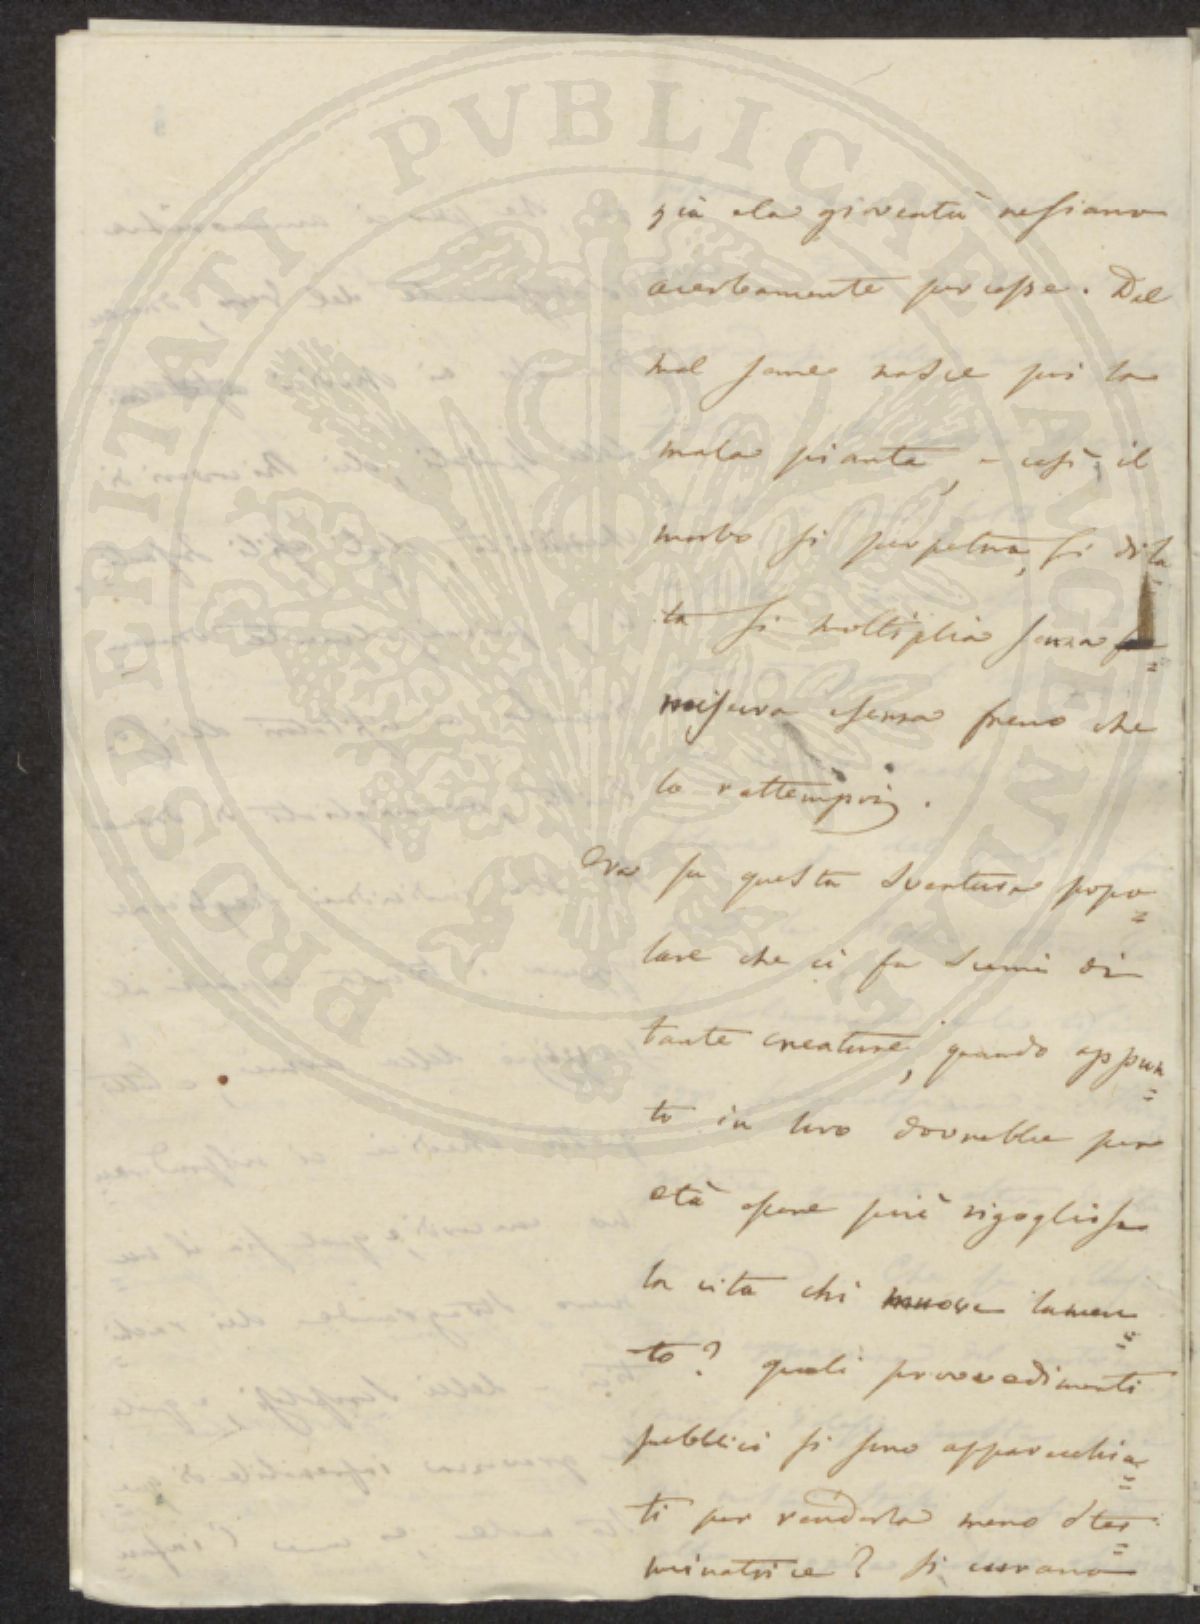 PROSPERITATI PVBLICAE AVGENDAE
già ela gioventù ne siano
acerbamente percosse. Dal
mal seme nasce poi la
mala pianta, e così il
morbo si perpetua, si dila
=
ta si moltiplica senza
=
misura e senza freno che
lo rattempri.
Ora su questa sventura popo
=
lare che ci fa scemi di
tante creature, quando appun
=
to in loro dovrebbe per
età essere più rigogliosa
la vita chi muove lamen
=
to? quali provvedimenti
pubblici si sono apparecchia
=
ti per renderla meno ster
=
minatrice? Si curano